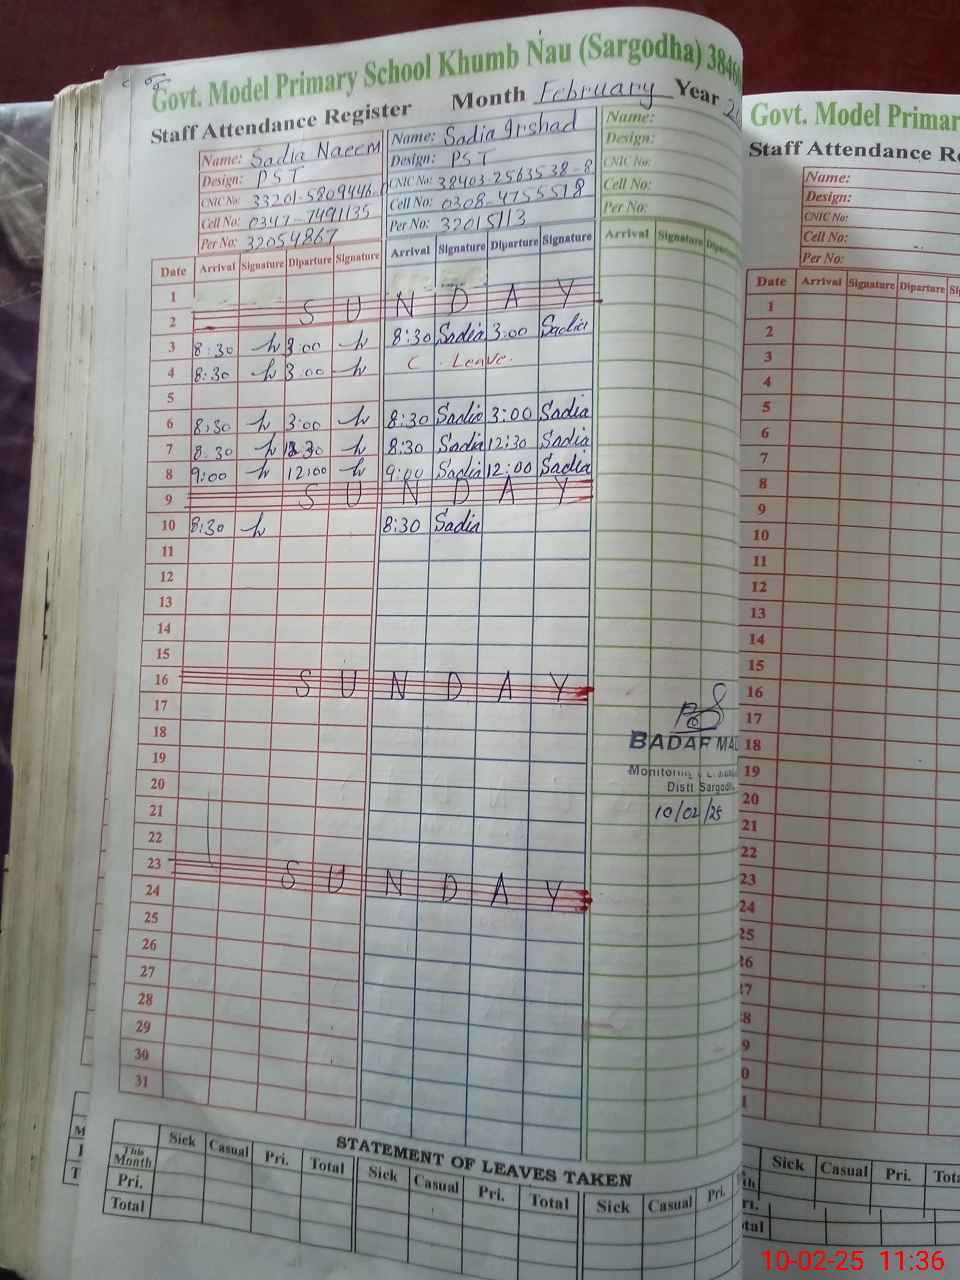 Govt. Model Primary School Khumb Nau (Sargodha)
Staff Attendance Register Month February Year
Name: Sadia Naeem Name: Sadia Irshad Name:
Design: PST Design: PST Design:
CNIC No: 33201-5809446 CNIC No: 38403-2563538-8 CNIC No:
Cell No: 0347-7491135 Cell No: 0308-4755518 Cell No:
Per No: 32054867 Per No: 32015113 Per No:
Date Arrival Signature Diparture Signature Arrival Signature Diparture Signature Arrival Signature
1
2 S U N D A Y
3 8:30 3:00 8:30 Sadia 3:00 Sadia
4 8:30 3:00 C. Leave.
5
6 8:30 3:00 8:30 Sadia 3:00 Sadia
7 8:30 8:30 Sadia 12:30 Sadia
8 9:00 12:00 9:00 Sadia 12:00 Sadia
9 S U N D A Y
10 8:30 8:30 Sadia
11
12
13
14
15
16 S U N D A Y
17
18
19
20
21
22
23 S U N D A Y
24
25
26
27
28
29
30
31
BADAF
Distt Sargodha
10/02/25
STATEMENT OF LEAVES TAKEN
Sick Casual Pri. Total Sick Casual Pri. Total Sick Casual Pri.
This Month
Pri.
Total
Govt. Model
Staff Attendance
Name:
Design:
CNIC No:
Cell No:
Per No:
Date Arrival Signature Diparture
1
2
3
4
5
6
7
8
9
10
11
12
13
14
15
16
17
18
19
20
21
22
23
24
Sick Casual Pri.
10-02-25 11:36